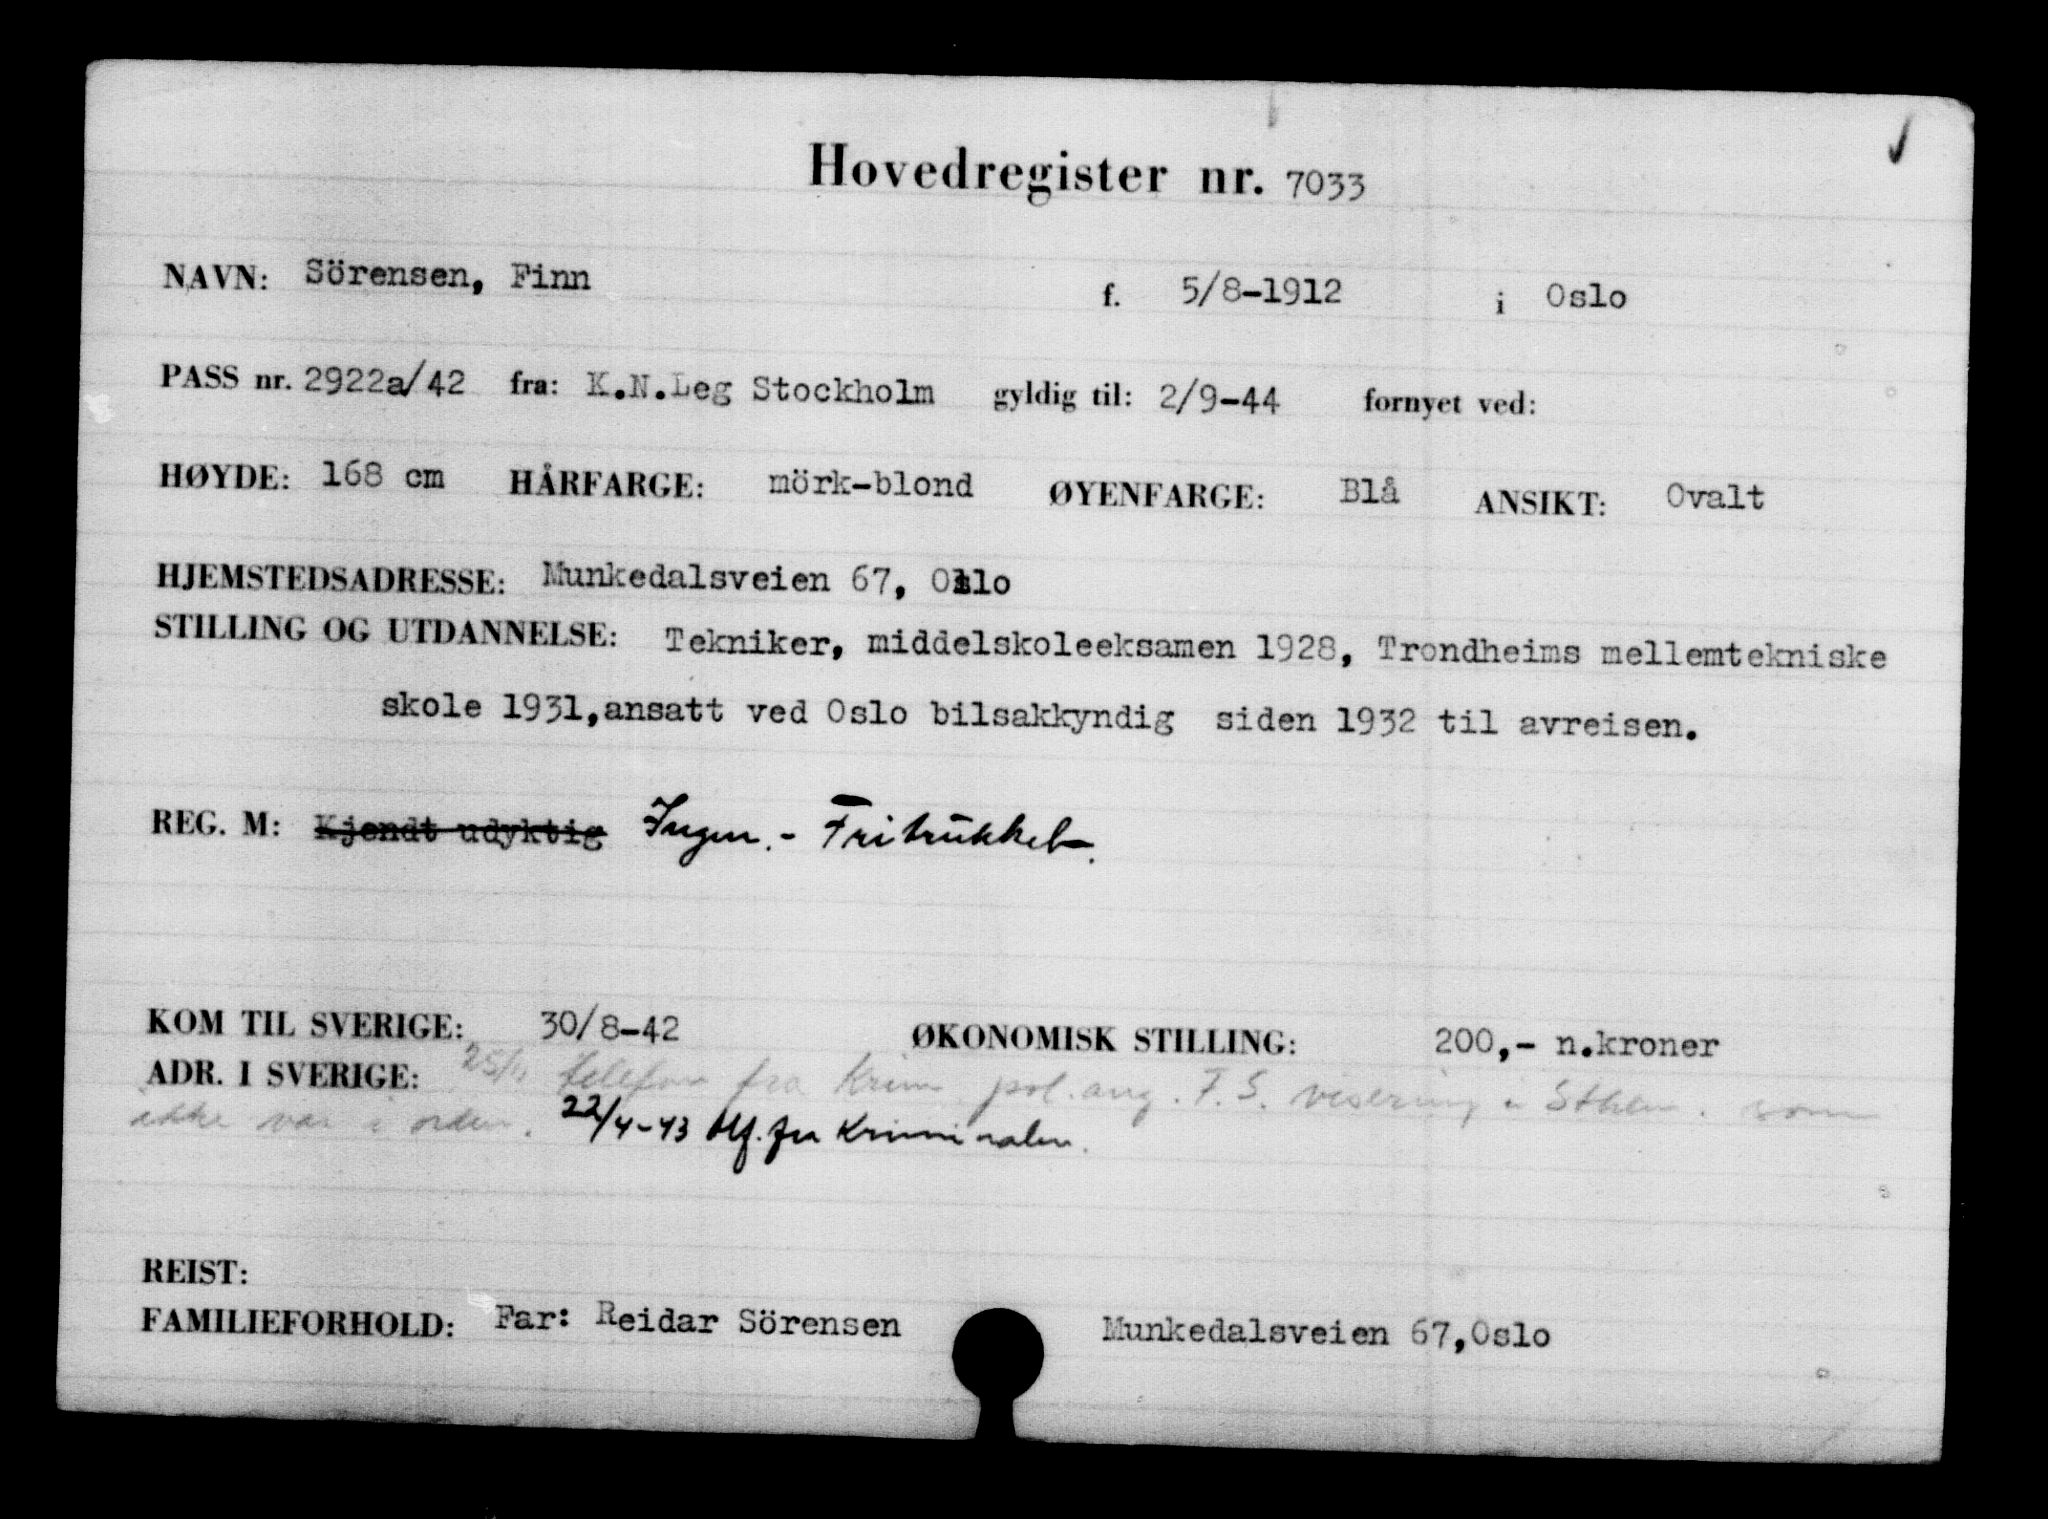 Hovedregister nr. 7033
NAVN: Sörensen, Finn f. 5/8-1912 i Oslo
PASS nr. 2922a/42 fra: K.N.Leg Stockholm gyldig til: 2/9-44 fornyet ved:
HØYDE: 168 cm HÅRFARGE: mörk-blond ØYENFARGE: Blå ANSIKT: Ovalt
HJEMSTEDSADRESSE: Munkedalsveien 67, Oslo
STILLING OG UTDANNELSE: Tekniker, middelskoleeksamen 1928, Trondheims mellemtekniske
skole 1931,ansatt ved Oslo bilsakkyndig siden 1932 til avreisen.
REG. M: Kjendt udyktig Ingen. - Fritrukket.
KOM TIL SVERIGE: 30/8-42 ØKONOMISK STILLING: 200,- n.kroner
ADR. I SVERIGE: telefon fra Krim pol. ang. F. S. visering i Sthlm. som
ikke var i orden. 22/4-43 tlf. fra Kriminalen.
REIST:
FAMILIEFORHOLD: Far: Reidar Sörensen Munkedalsveien 67,Oslo